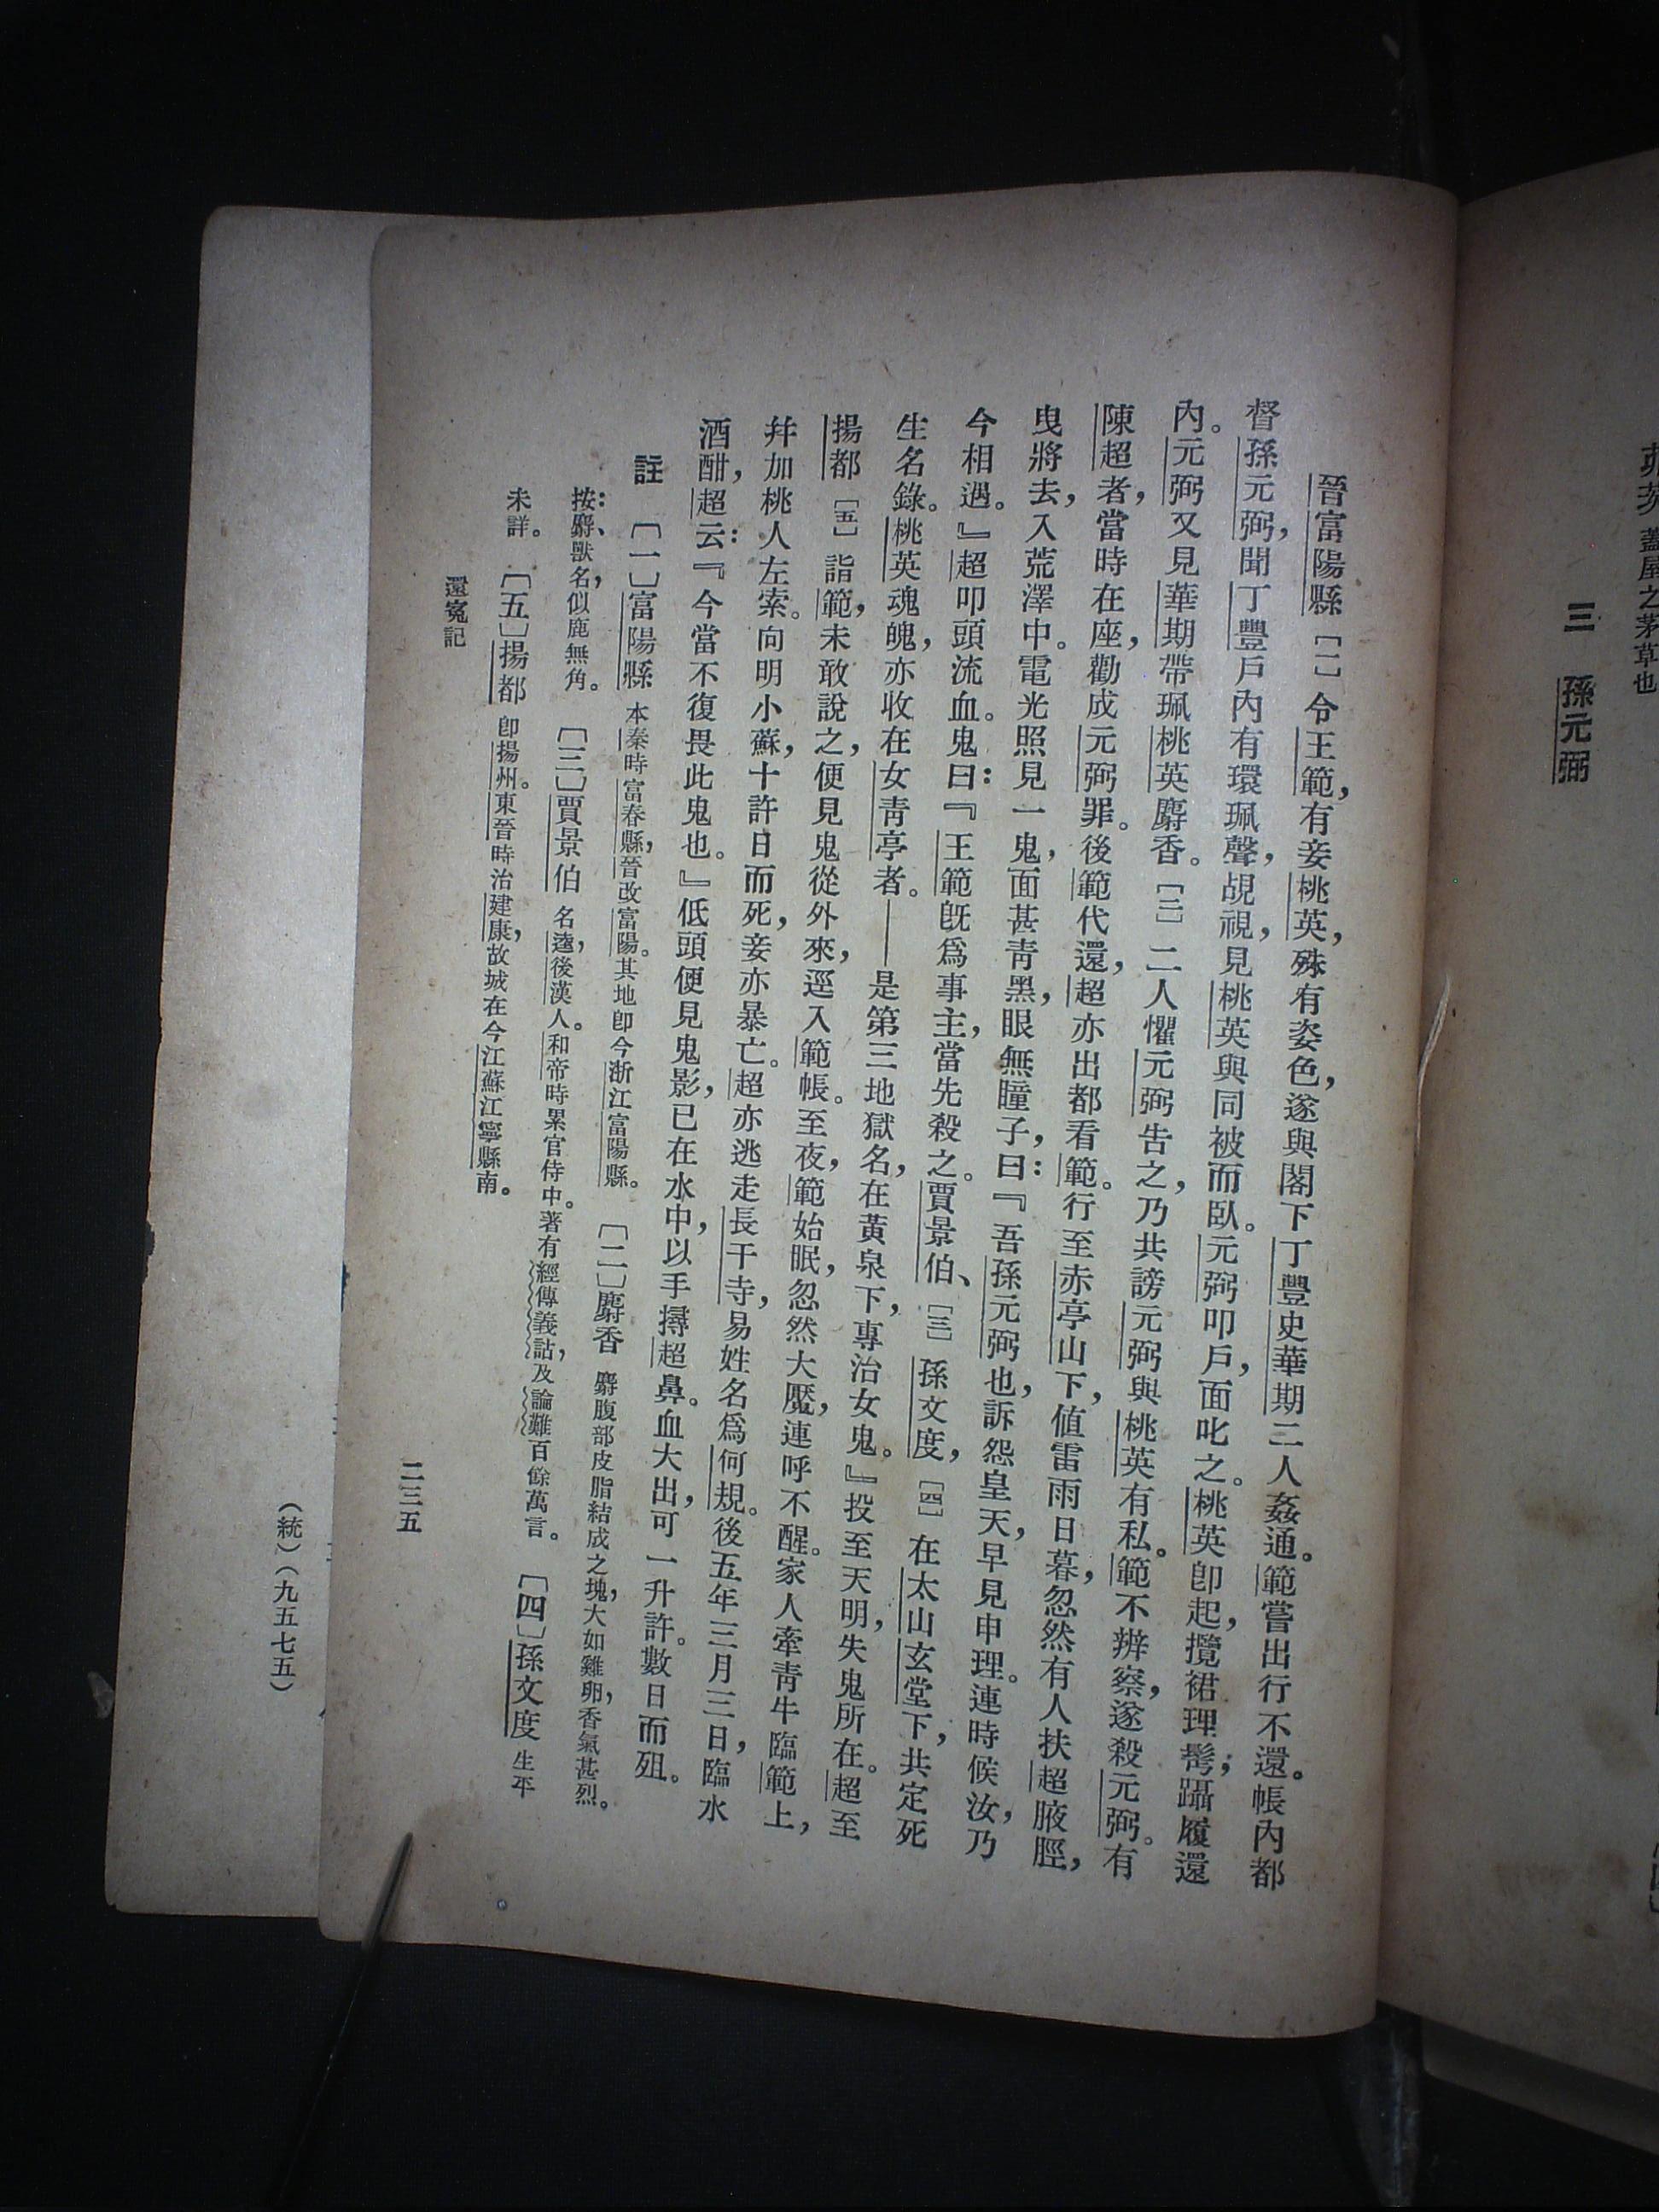 蓋屋之茅草也
三　孫元弼
晉富陽縣〔一〕令王範，有妾桃英，殊有姿色，遂與閣下丁豐史華期二人姦通。範嘗出行不還。帳內都
督孫元弼，聞丁豐戶內有環珮聲，覘視，見桃英與同被而臥。元弼叩戶，面叱之。桃英卽起，攬裙理髩；躡履還
內。元弼又見華期帶珮桃英麝香。〔二〕二人懼元弼告之，乃共謗元弼與桃英有私。範不辨察，遂殺元弼。有
陳超者，當時在座，勸成元弼罪。後範代還，超亦出都看範。行至赤亭山下，値雷雨日暮，忽然有人扶超腋脛，
曳將去，入荒澤中。電光照見一鬼，面甚靑黑，眼無瞳子，曰：『吾孫元弼也，訴怨皇天，早見申理。連時候汝，乃
今相遇。』超叩頭流血。鬼曰：『王範旣爲事主，當先殺之。賈景伯、〔三〕孫文度，〔四〕在太山玄堂下，共定死
生名錄。桃英魂魄，亦收在女靑亭者。——是第三地獄名，在黃泉下，專治女鬼。』投至天明，失鬼所在。超至
揚都〔五〕詣範，未敢說之，便見鬼從外來，逕入範帳。至夜，範始眠，忽然大魘，連呼不醒。家人牽靑牛臨範上，
幷加桃人左索。向明小蘇，十許日而死，妾亦暴亡。超亦逃走長干寺，易姓名爲何規。後五年三月三日，臨水
酒酣，超云：『今當不復畏此鬼也。』低頭便見鬼影，已在水中，以手撏超鼻。血大出，可一升許。數日而殂。
註　〔一〕富陽縣　本秦時富春縣，晉改富陽。其地卽今浙江富陽縣。　〔二〕麝香　麝腹部皮脂結成之塊，大如雞卵，香氣甚烈。
按：麝、獸名，似鹿無角。　〔三〕賈景伯　名逵，後漢人。和帝時累官侍中。著有經傳義詁，及論難百餘萬言。　〔四〕孫文度　生平
未詳。　〔五〕揚都　卽揚州。東晉時治建康，故城在今江蘇江寧縣南。
還冤記
二三五
（統）（九五七五）